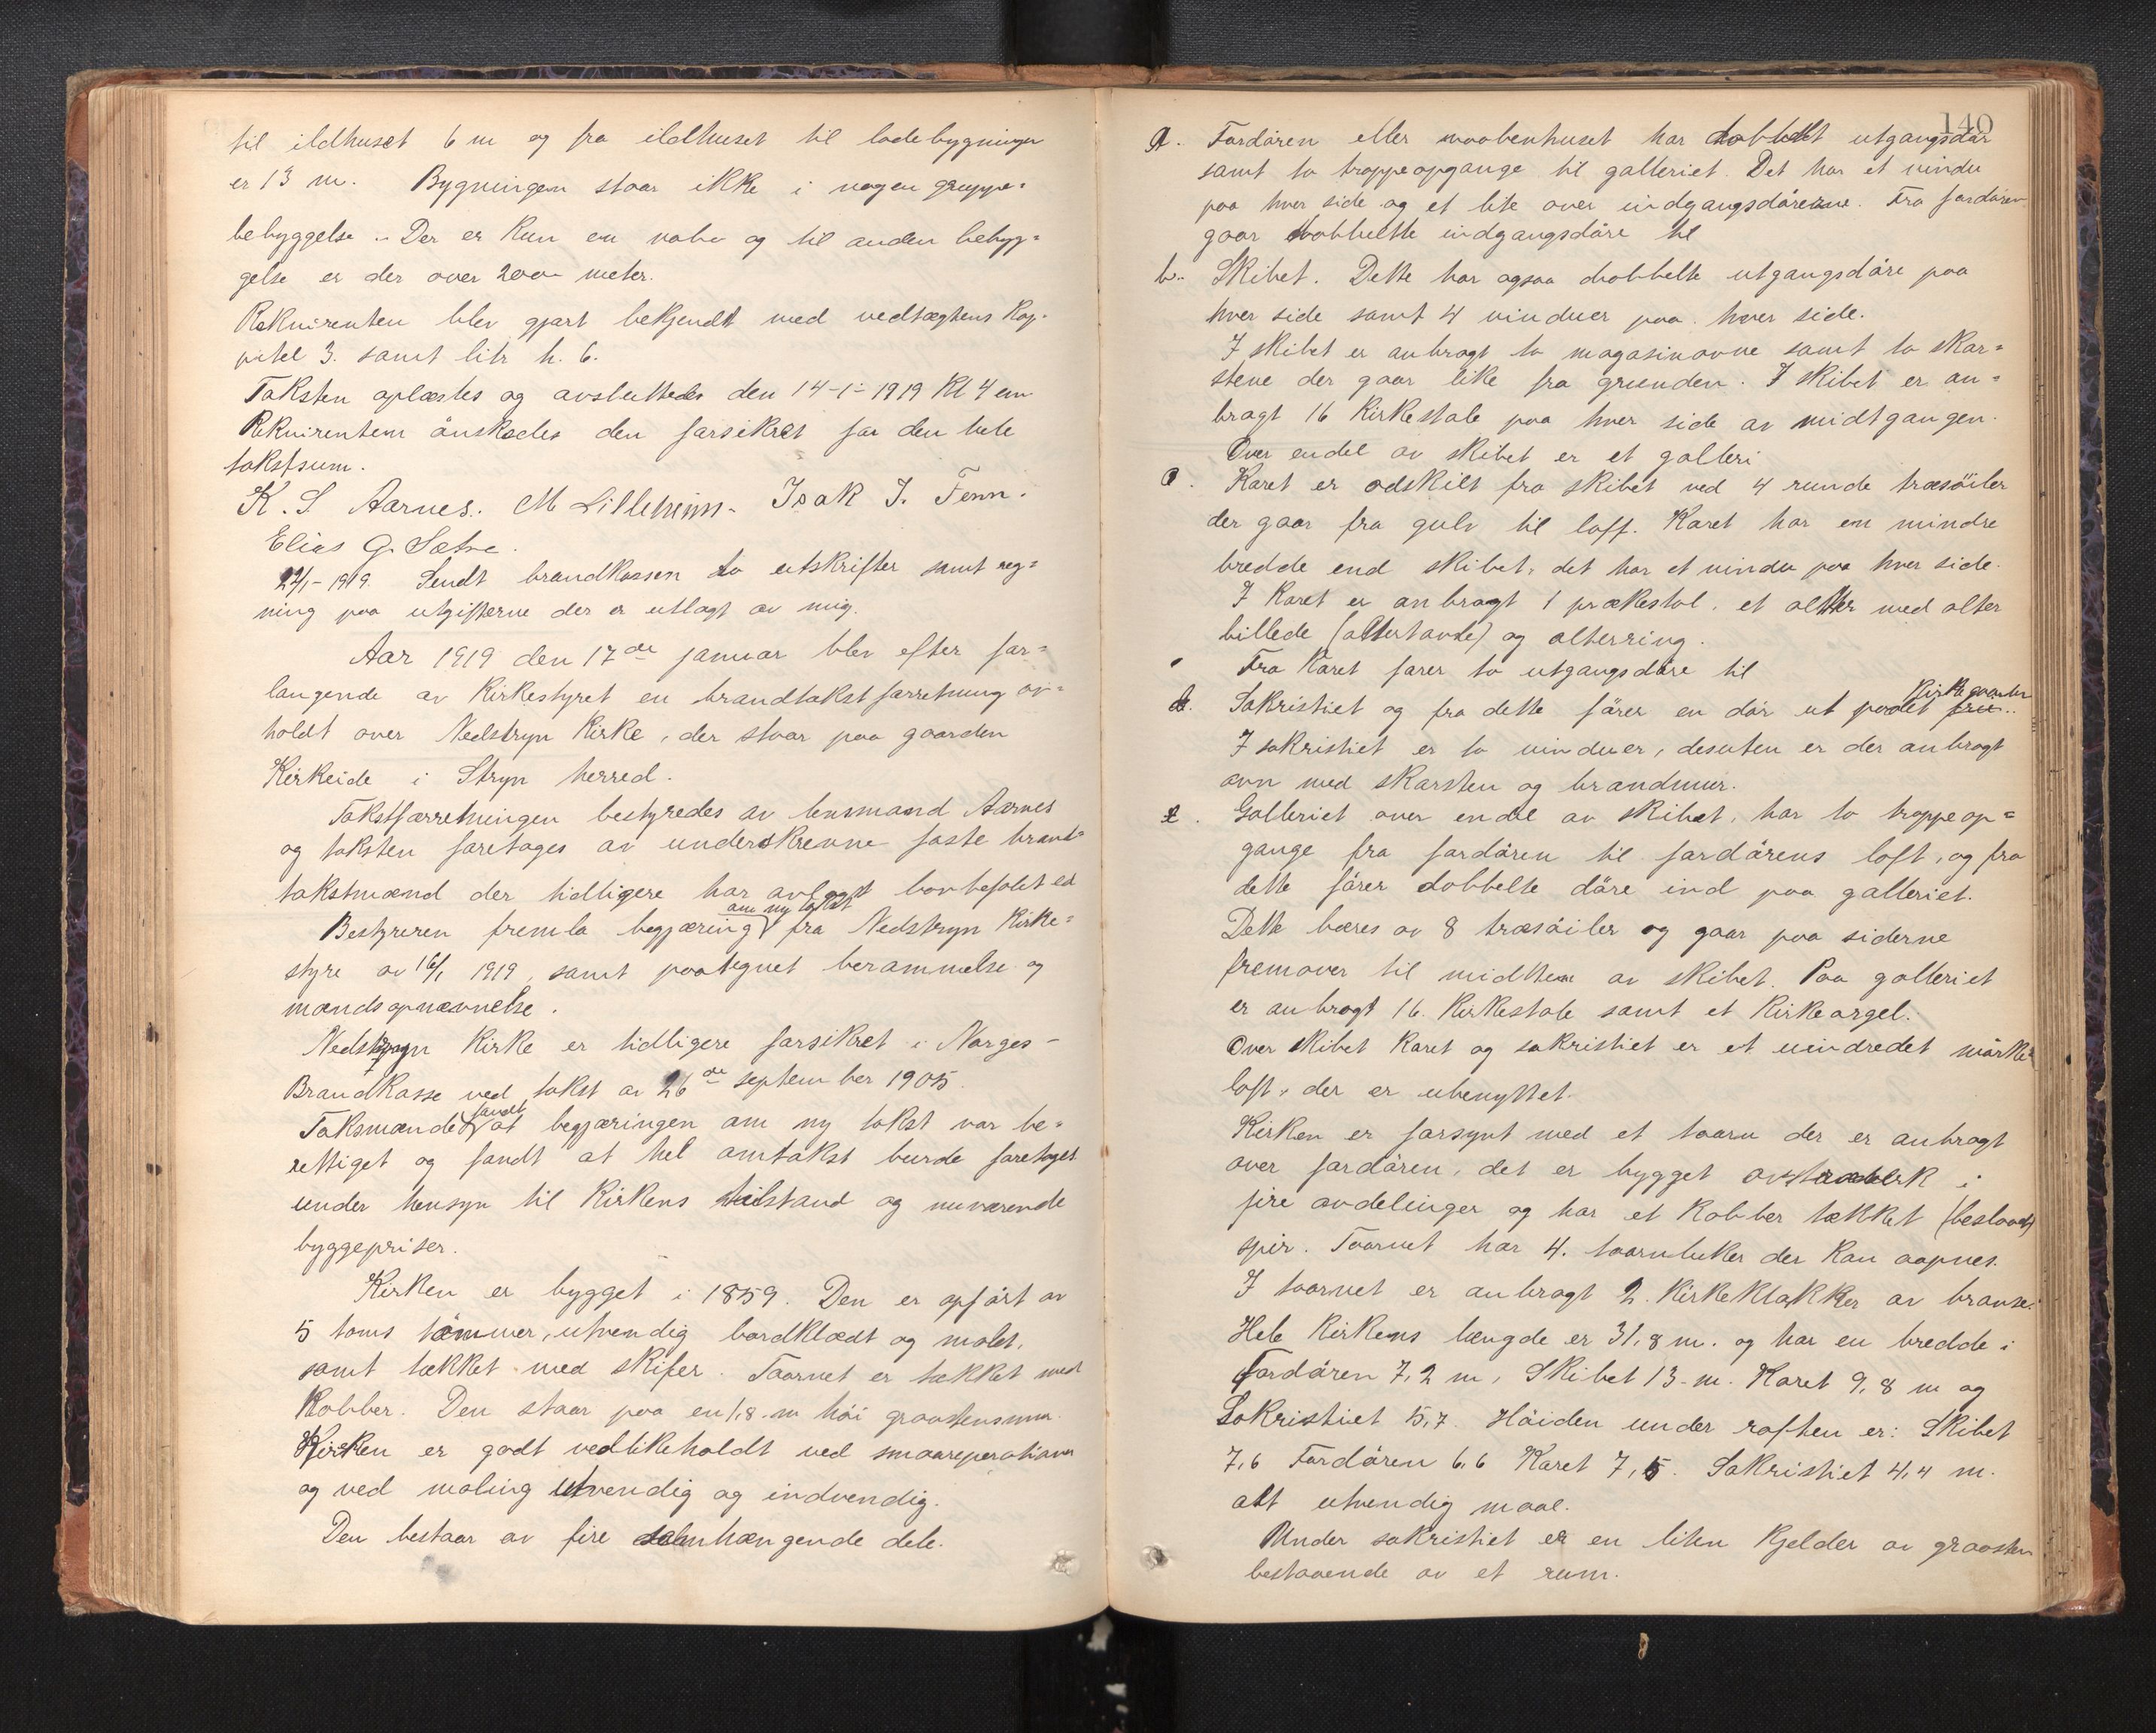 til ildhuset 6 m og fra ildhuset til ladebygningen
er 13 m. Bygningen staar ikke i nogen gruppe=
bebyggelse. Der er kun en nabo og til anden bebyg=
gelse er der over 200 meter.
Rekvirenten blev gjort bekjendt med vedtægtens Kap=
pitel 3. samt litr h. 6.
Taksten oplæstes og avsluttedes den 14-1-1919 Kl 4 em
Rekvirenten önskedes den forsikret for den hele
takstsum.
K. S Aarnes. M Lilleheim. Isak J. Fenn.
Elias G. Sætre.
22/1-1919. Sendt brandkassen to utskrifter samt reg=
ning paa utgifterne der er utlagt av mig.
Aar 1919 den 17de januar blev efter for=
langende av Kirkestyret en brandtakstforretning av=
holdt over Nedstryn Kirke, der staar paa gaarden
Kirkeide i Stryn herred.
Takstforretningen bestyredes av lensmand Aarnes
og taksten foretoges av underskrevne faste brand=
takstmænd der tidligere har avlagt lovbefalet ed
om ny takst
Bestyreren fremla begjæring fra Nedstryn Kirke=
styre av 16/1 1919, samt paategnet berammelse og
mandsopnævnelse.
Nedstryn Kirke er tidligere forsikret i Norges-
Brandkasse ved takst av 26de september 1905.
fandt
Taksmændene at begjæringen om ny takst var be=
rettiget og fandt at hel omtakst burde foretages
under hensyn til Kirkens tilstand og nuværende
byggepriser.
Kirken er bygget i 1859. Den er opført av
5 toms tömmer, utvendig bordklædt og malet,
samt tækket med skifer. Taarnet er tækket med
Kobber. Den staar paa en 1,8 m høi graastensmur.
Kirken er godt vedlikeholdt ved smaareperationer
og ved maling utvendig og indvendig.
Den bestaar av fire samhængende dele.
140
a. Fordören eller vaabenhuset har dobbelt utgangsdör
samt to trappeopgange til galleriet. Det har et vindu
paa hver side og et lite over indgangsdörene. Fra fordören
gaar dobbelte indgangsdöre til
b. Skibet. Dette har ogsaa dobbelte utgangsdöre paa
hver side samt 4 vinduer paa hver side.
I skibet er anbragt to magasinovne samt to skor=
stene der gaar like fra grunden. I skibet er an=
bragt 16 Kirkestole paa hver side av midtgangen.
Over endel av skibet er et galleri
c. Koret er adskilt fra skibet ved 4 runde træsöiler
der gaar fra gulv til loft. Koret har en mindre
bredde end skibet, det har et vindu paa hver side.
I Koret er anbragt 1 prækestol, et alter med alter
billede (altertavle) og alterring.
Fra Koret förer to utgangsdöre til
Kirkegaarden
d. Sakristiet og fra dette förer en dör ut paa
I sakristiet er to vinduer, desuten er der anbragt
ovn med skorsten og brandmur.
e. Galleriet over endel av skibet, har to trappeop=
gange fra fordören til fordörens loft, og fra
dette förer dobbelte döre ind paa galleriet.
Dette bæres av 8 træsöiler og gaar paa siderne
fremover til midten av skibet. Paa galleriet
er anbragt 16 Kirkestole samt et Kirkeorgel.
Over skibet Koret og sakristiet er et uindredet mörke=
loft, der er ubenyttet.
Kirken er forsynt med et taarn der er anbragt
over fordören, det er bygget av træverk i
fire avdelinger og har et Kobber tækket (beslaat)
spir. Taarnet har 4. taarnluker der kan aapnes.
I taarnet er anbragt 2. Kirkeklokker av bronse.
Hele Kirkens længde er 31,8 m. og har en bredde i
Fordören 7,2 m, Skibet 13 m. Koret 9,8 m og
Sakristiet 5,7. Höiden under raften er: Skibet
7,6 Fordören 6,6 Koret 7,5. Sakristiet 4,4 m.
alt utvendig maal.
Under sakristiet er en liten Kjelder av graasten
bestaaende av et rum.